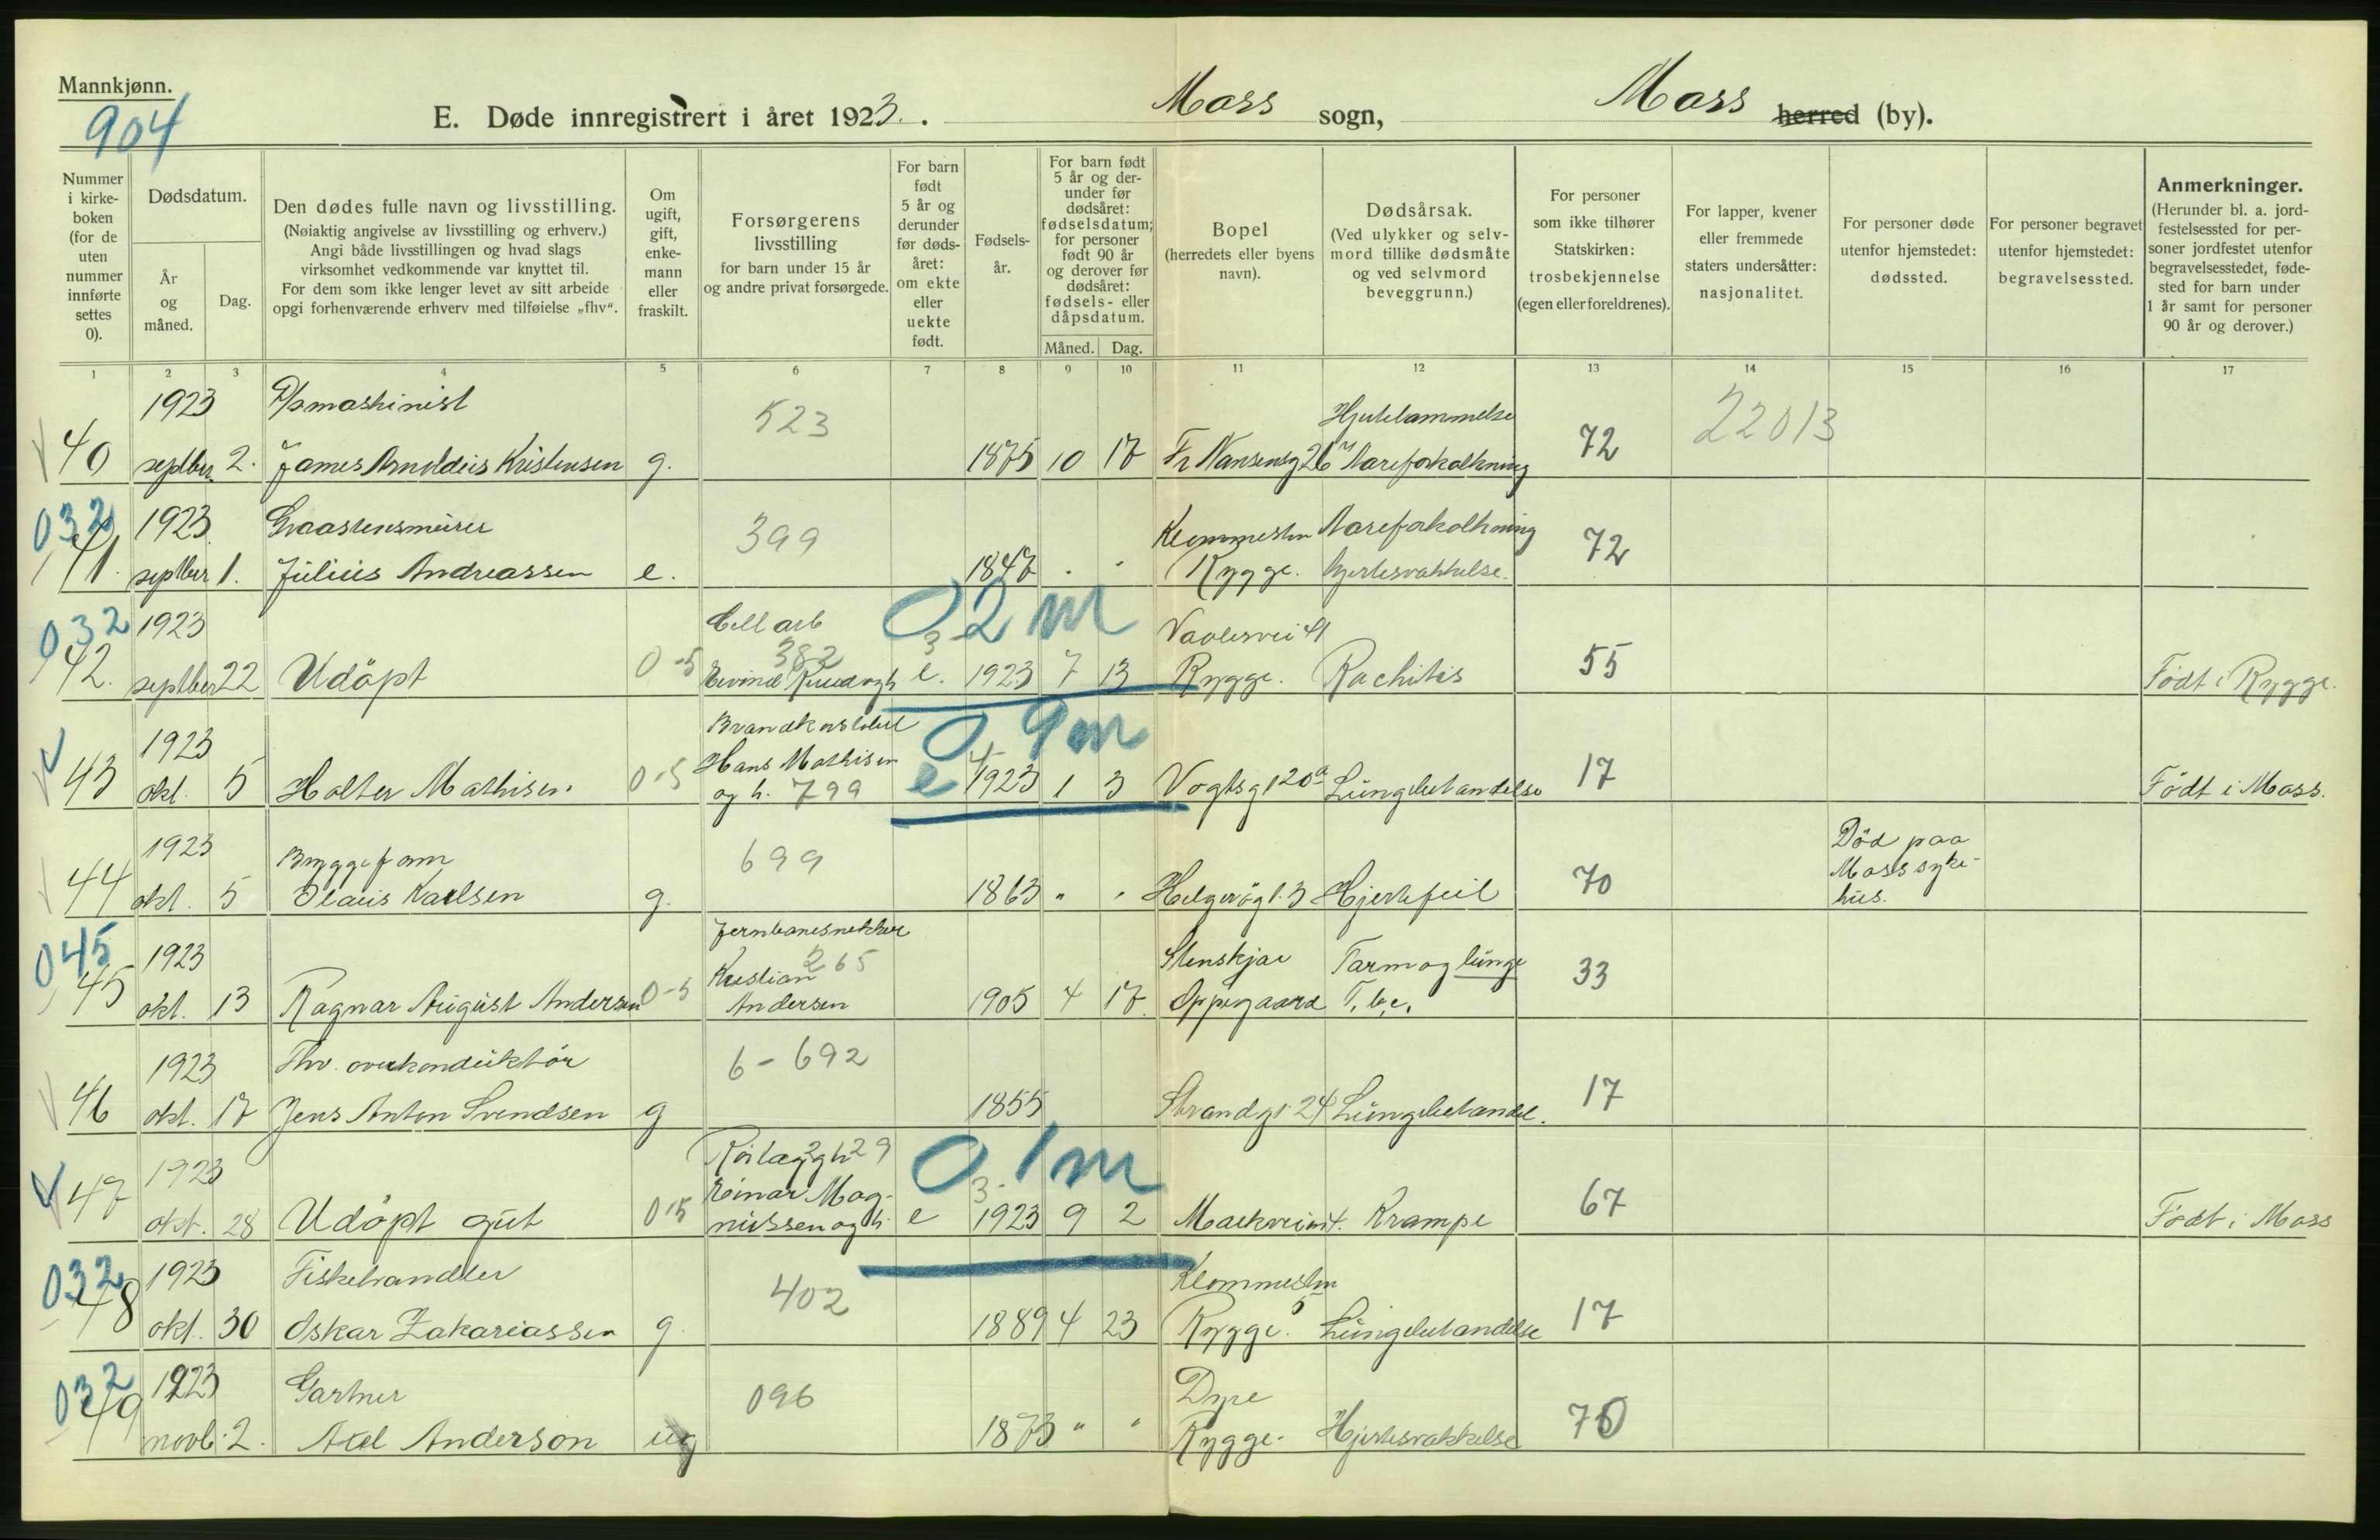 Mannkjønn.
904
E. Døde innregistrert i året 1923. Moss sogn, Moss herred (by).
Nummer i kirke-boken (for de uten nummer innførte settes 0).
Dødsdatum.
År og måned.
Dag.
Den dødes fulle navn og livsstilling.
(Nøiaktig angivelse av livsstilling og erhverv.)
Angi både livsstillingen og hvad slags
virksomhet vedkommende var knyttet til.
For dem som ikke lenger levet av sitt arbeide
opgi forhenværende erhverv med tilføielse „fhv“.
Om ugift, gift, enke-mann eller fraskilt.
Forsørgerens livsstilling
for barn under 15 år
og andre privat forsørgede.
For barn født 5 år og derunder før døds-året: om ekte eller uekte født.
Fødsels-år.
For barn født 5 år og der-under før dødsåret: fødselsdatum; for personer født 90 år og derover før dødsåret: fødsels- eller dåpsdatum.
Måned. Dag.
Bopel
(herredets eller byens navn).
Dødsårsak.
(Ved ulykker og selv-
mord tillike dødsmåte
og ved selvmord
beveggrunn.)
For personer
som ikke tilhører
Statskirken:
trosbekjennelse
(egen eller foreldrenes).
For lapper, kvener
eller fremmede
staters undersåtter:
nasjonalitet.
For personer døde
utenfor hjemstedet:
dødssted.
For personer begravet
utenfor hjemstedet:
begravelsessted.
Anmerkninger.
(Herunder bl. a. jord-
festelsessted for per-
soner jordfestet utenfor
begravelsesstedet, føde-
sted for barn under
1 år samt for personer
90 år og derover.)
1 2 3 4 5 6 7 8 9 10 11 12 13 14 15 16 17
1923 D/smaskinist 523 Hjertelammelse 22013
40 septber 2. James Arnoldus Kristensen g. 1875 10 17 Fr Nansensg 26 Aareforkalkning 72
032 1923 Graastensmurer 399 Klommestn Aareforkalkning
41. septber 1. Julius Andreassen e. 1847 " " Rygge. Hjertesvakkelse. 72
032 1923 Cell arb 0 2 m Vaalervei 41
382 3
42. septber 22 Udöpt 0-5 Eivind Ruud og h e. 1923 7 13 Rygge. Rachitis 55 Födt i Rygge.
1923 Brandkonstabel 0 9 m
Hans Mathisen 4
43 okt. 5 Holter Mathisen. 0-5 og h. 799 e 1923 1 3 Vogtsgt 20a Lungebetændelse 17 Födt i Moss.
1923 Bryggeform 699 Död paa
Moss syke-
44 okt. 5 Olaus Karlsen g. 1863 " " Helgerögt. 3 Hjertefeil 70 hus.
045 1923 Jernbanesnekker Stenskjær Tarm og lunge
Kristian 265
45 okt. 13 Ragnar August Andersen 0-5 Andersen 1905 4 17. Oppegaard T.b.c. 33
1923 Fhv. overkonduktör 6-692
46 okt. 17 Jens Anton Svendsen g 1855 Strandgt 24 Lungebetændel. 17
1923 Rörlægg h 229 0 1 m
Einar Mag- 3-
47 okt. 28 Udöpt gut 0-5 nussen og h. e 1923 9 2 Krampe 67 Födt i Moss
032 1923 Fiskehandler 402 Klommestn
48 okt. 30 Oskar Zakariassen g. 1889 4 23 Rygge. Lungebetændelse 17
032 1923 Gartner 096 Dyre
49 novb. 2. Axel Anderson ug 1873 " " Rygge. Hjertesvakkelse 70